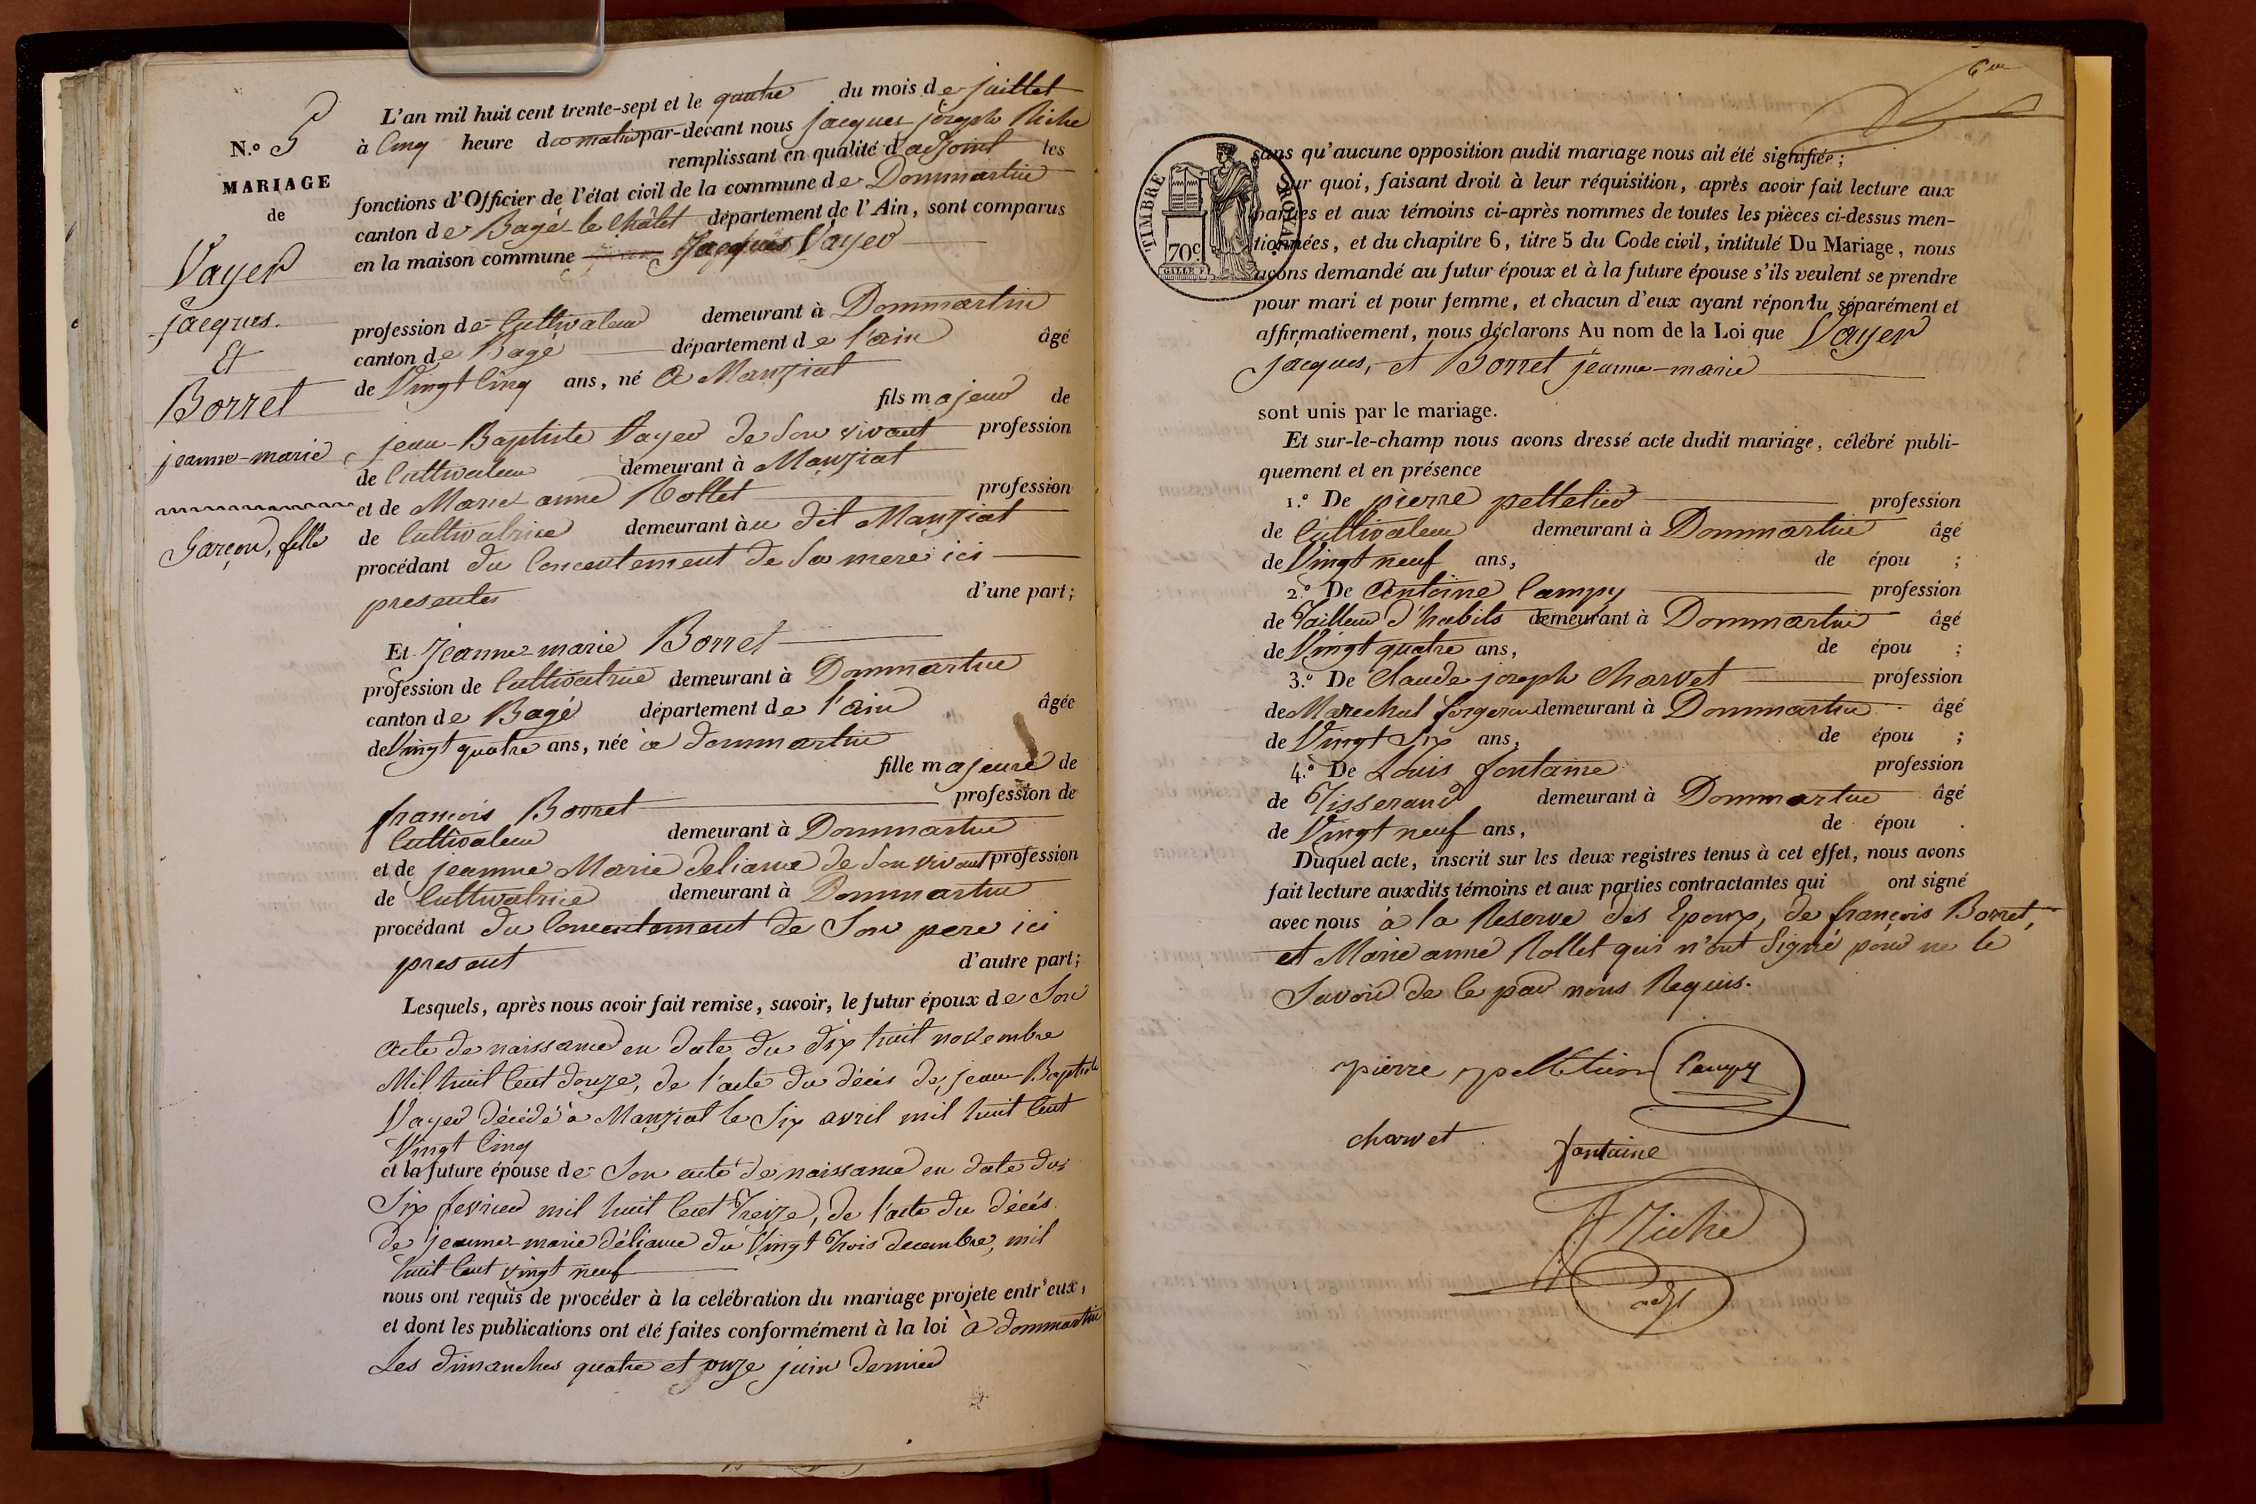 N.º 5
MARIAGE
de
Vayer
jacques.
Et
Borret
jeanne-marie
Garçon, fille
L'an mil huit cent trente-sept et le quatre du mois de juillet
à Cinq heure du matin par-devant nous jacques joseph Riche
remplissant en qualité d'adjoint les
fonctions d'Officier de l'état civil de la commune de Dommartin
canton de Bagé-le Châtel département de l'Ain, sont comparus
en la maison commune Jacques Vayer
profession de Cultivateur demeurant à Dommartin
canton de Bagé département de l'ain âgé
de Vingt Cinq ans, né à Manziat
fils majeur de
jean-Baptiste Vayer de Son vivant profession
de Cultivateur demeurant à Manziat
et de Marie anne Rollet profession
de Cultivatrice demeurant àu dit Manziat
procédant du Concentement de Sa mere ici
presente d'une part;
Et Jeanne-marie Borret
profession de Cultivatrice demeurant à Dommartin
canton de Bagé département de l'ain âgée
de Vingt quatre ans, née à dommartin
fille majeure de
françois Borret profession de
Cultivateur demeurant à Dommartin
et de jeanne Marie deliance de Son vivant profession
de Cultivatrice demeurant à Dommartin
procédant du Concentement de Son pere ici
present d'autre part;
Lesquels, après nous avoir fait remise, savoir, le futur époux de Son
acte de naissance en date du dix huit novembre
Mil huit Cent douze, de l'acte du décés de jean-Baptiste
Vayer décédé à Manziat le Six avril mil huit Cent
Vingt Cinq
et la future épouse de Son acte de naissance en date du
Six fevrier mil huit Cent Treize, de l'acte du décés
de jeanne-marie déliance du Vingt Trois decembre, mil
huit Cent vingt neuf
nous ont requis de procéder à la celébration du mariage projete entr'eux,
et dont les publications ont été faites conformément à la loi à dommartin
Les dimanches quatre et onze juin dernier
TIMBRE ROYAL
70c
sans qu'aucune opposition audit mariage nous ait été signifiée;
Sur quoi, faisant droit à leur réquisition, après avoir fait lecture aux
parties et aux témoins ci-après nommes de toutes les pièces ci-dessus men-
tionnées, et du chapitre 6, titre 5 du Code civil, intitulé Du Mariage, nous
avons demandé au futur époux et à la future épouse s'ils veulent se prendre
pour mari et pour femme, et chacun d'eux ayant répondu séparément et
affirmativement, nous déclarons Au nom de la Loi que Vayer
Jacques, et Borret jeanne-marie
sont unis par le mariage.
Et sur-le-champ nous avons dressé acte dudit mariage, célébré publi-
quement et en présence
1.º De pierre pelletier profession
de Cultivateur demeurant à Dommartin âgé
de Vingt neuf ans, de épou ;
2.º De Antoine Campy profession
de Tailleur d'habits demeurant à Dommartin âgé
de Vingt quatre ans, de épou ;
3.º De Claude joseph Charvet profession
de Marechal forgeron demeurant à Dommartin âgé
de Vingt Six ans, de épou ;
4.º De Louis fontaine profession
de Tisserand demeurant à Dommartin âgé
de Vingt neuf ans, de épou .
Duquel acte, inscrit sur les deux registres tenus à cet effet, nous avons
fait lecture auxdits témoins et aux parties contractantes qui ont signé
avec nous à la Reserve des Epoux, de françois Borret,
et Marie anne Rollet qui n'ont Signé pour ne le
Savoir de le par nous Requis.
pierre pelletier Campy
charvet fontaine
Riche
adjt